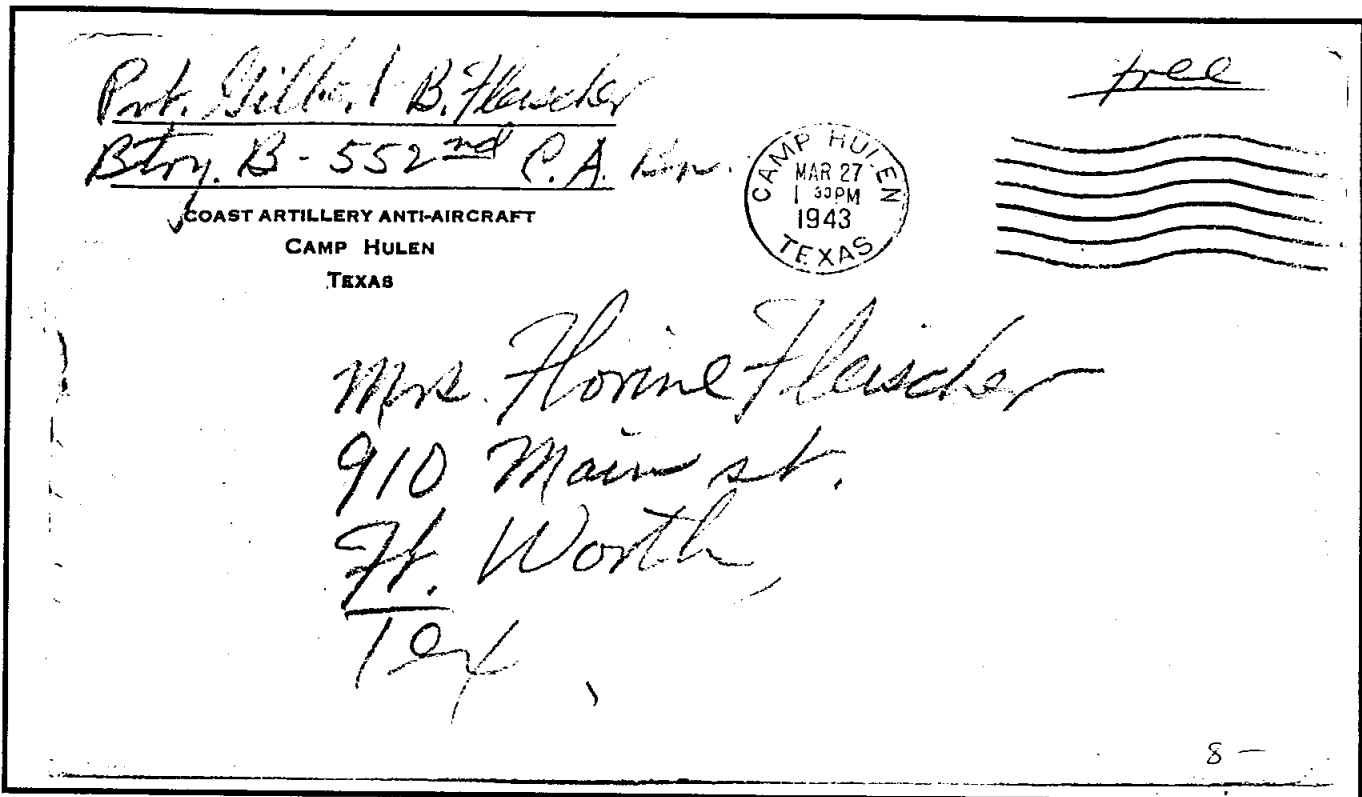 Pvt. Gilbert B. Fleischer
Btry. B - 552nd C.A. Bn.
COAST ARTILLERY ANTI-AIRCRAFT
CAMP HULEN
TEXAS
free
CAMP HULEN
MAR 27
1 30 PM
1943
TEXAS
Mrs. Florine Fleischer
910 Main st.
Ft. Worth,
Tex
8 -